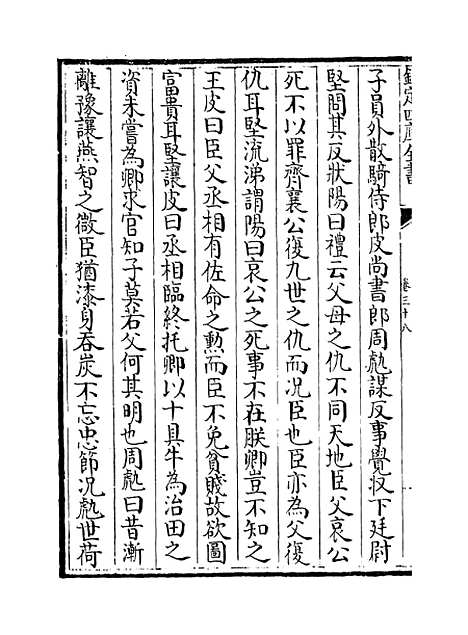 欽定四庫全書
卷三十八
子員外散騎侍郎皮尚書郎周虓謀反事覺收下廷尉
堅問其反狀陽曰禮云父母之仇不同天地臣父哀公
死不以罪齊襄公復九世之仇而况臣也臣亦為父復
仇耳堅流涕謂陽曰哀公之死事不在朕卿豈不知之
王皮曰臣父丞相有佐命之勲而臣不免貧賤故欲圖
富貴耳堅讓皮曰丞相臨終托卿以十具牛為治田之
資未嘗為卿求官知子莫若父何其明也周虓曰昔漸
離豫讓燕智之微臣猶漆身吞炭不忘忠節况虓世荷